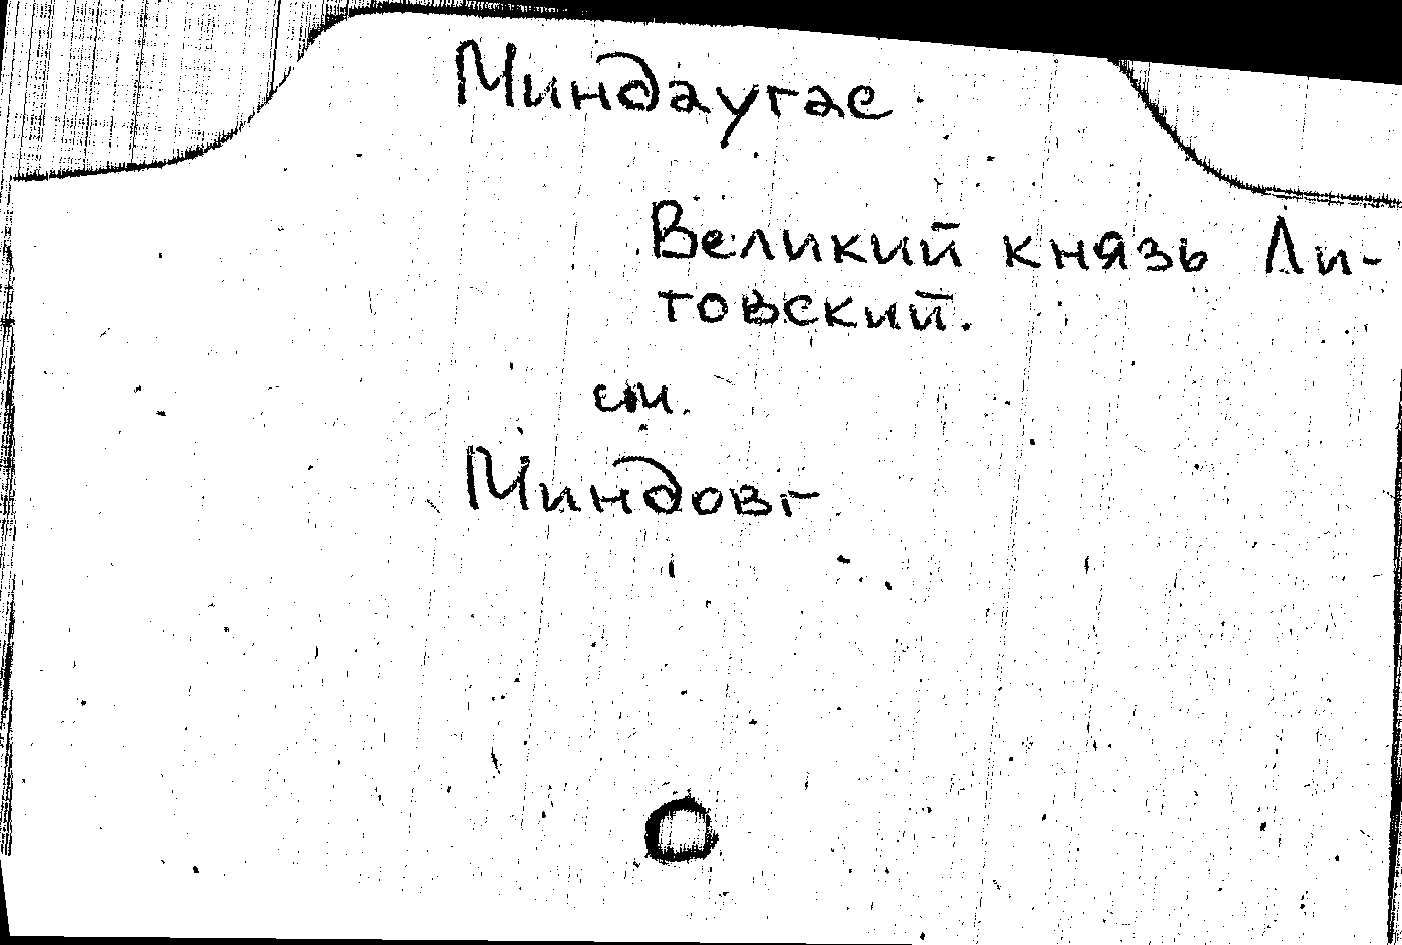 Миндаугас
Великий князь Ли-
товский.
см.
Миндовг